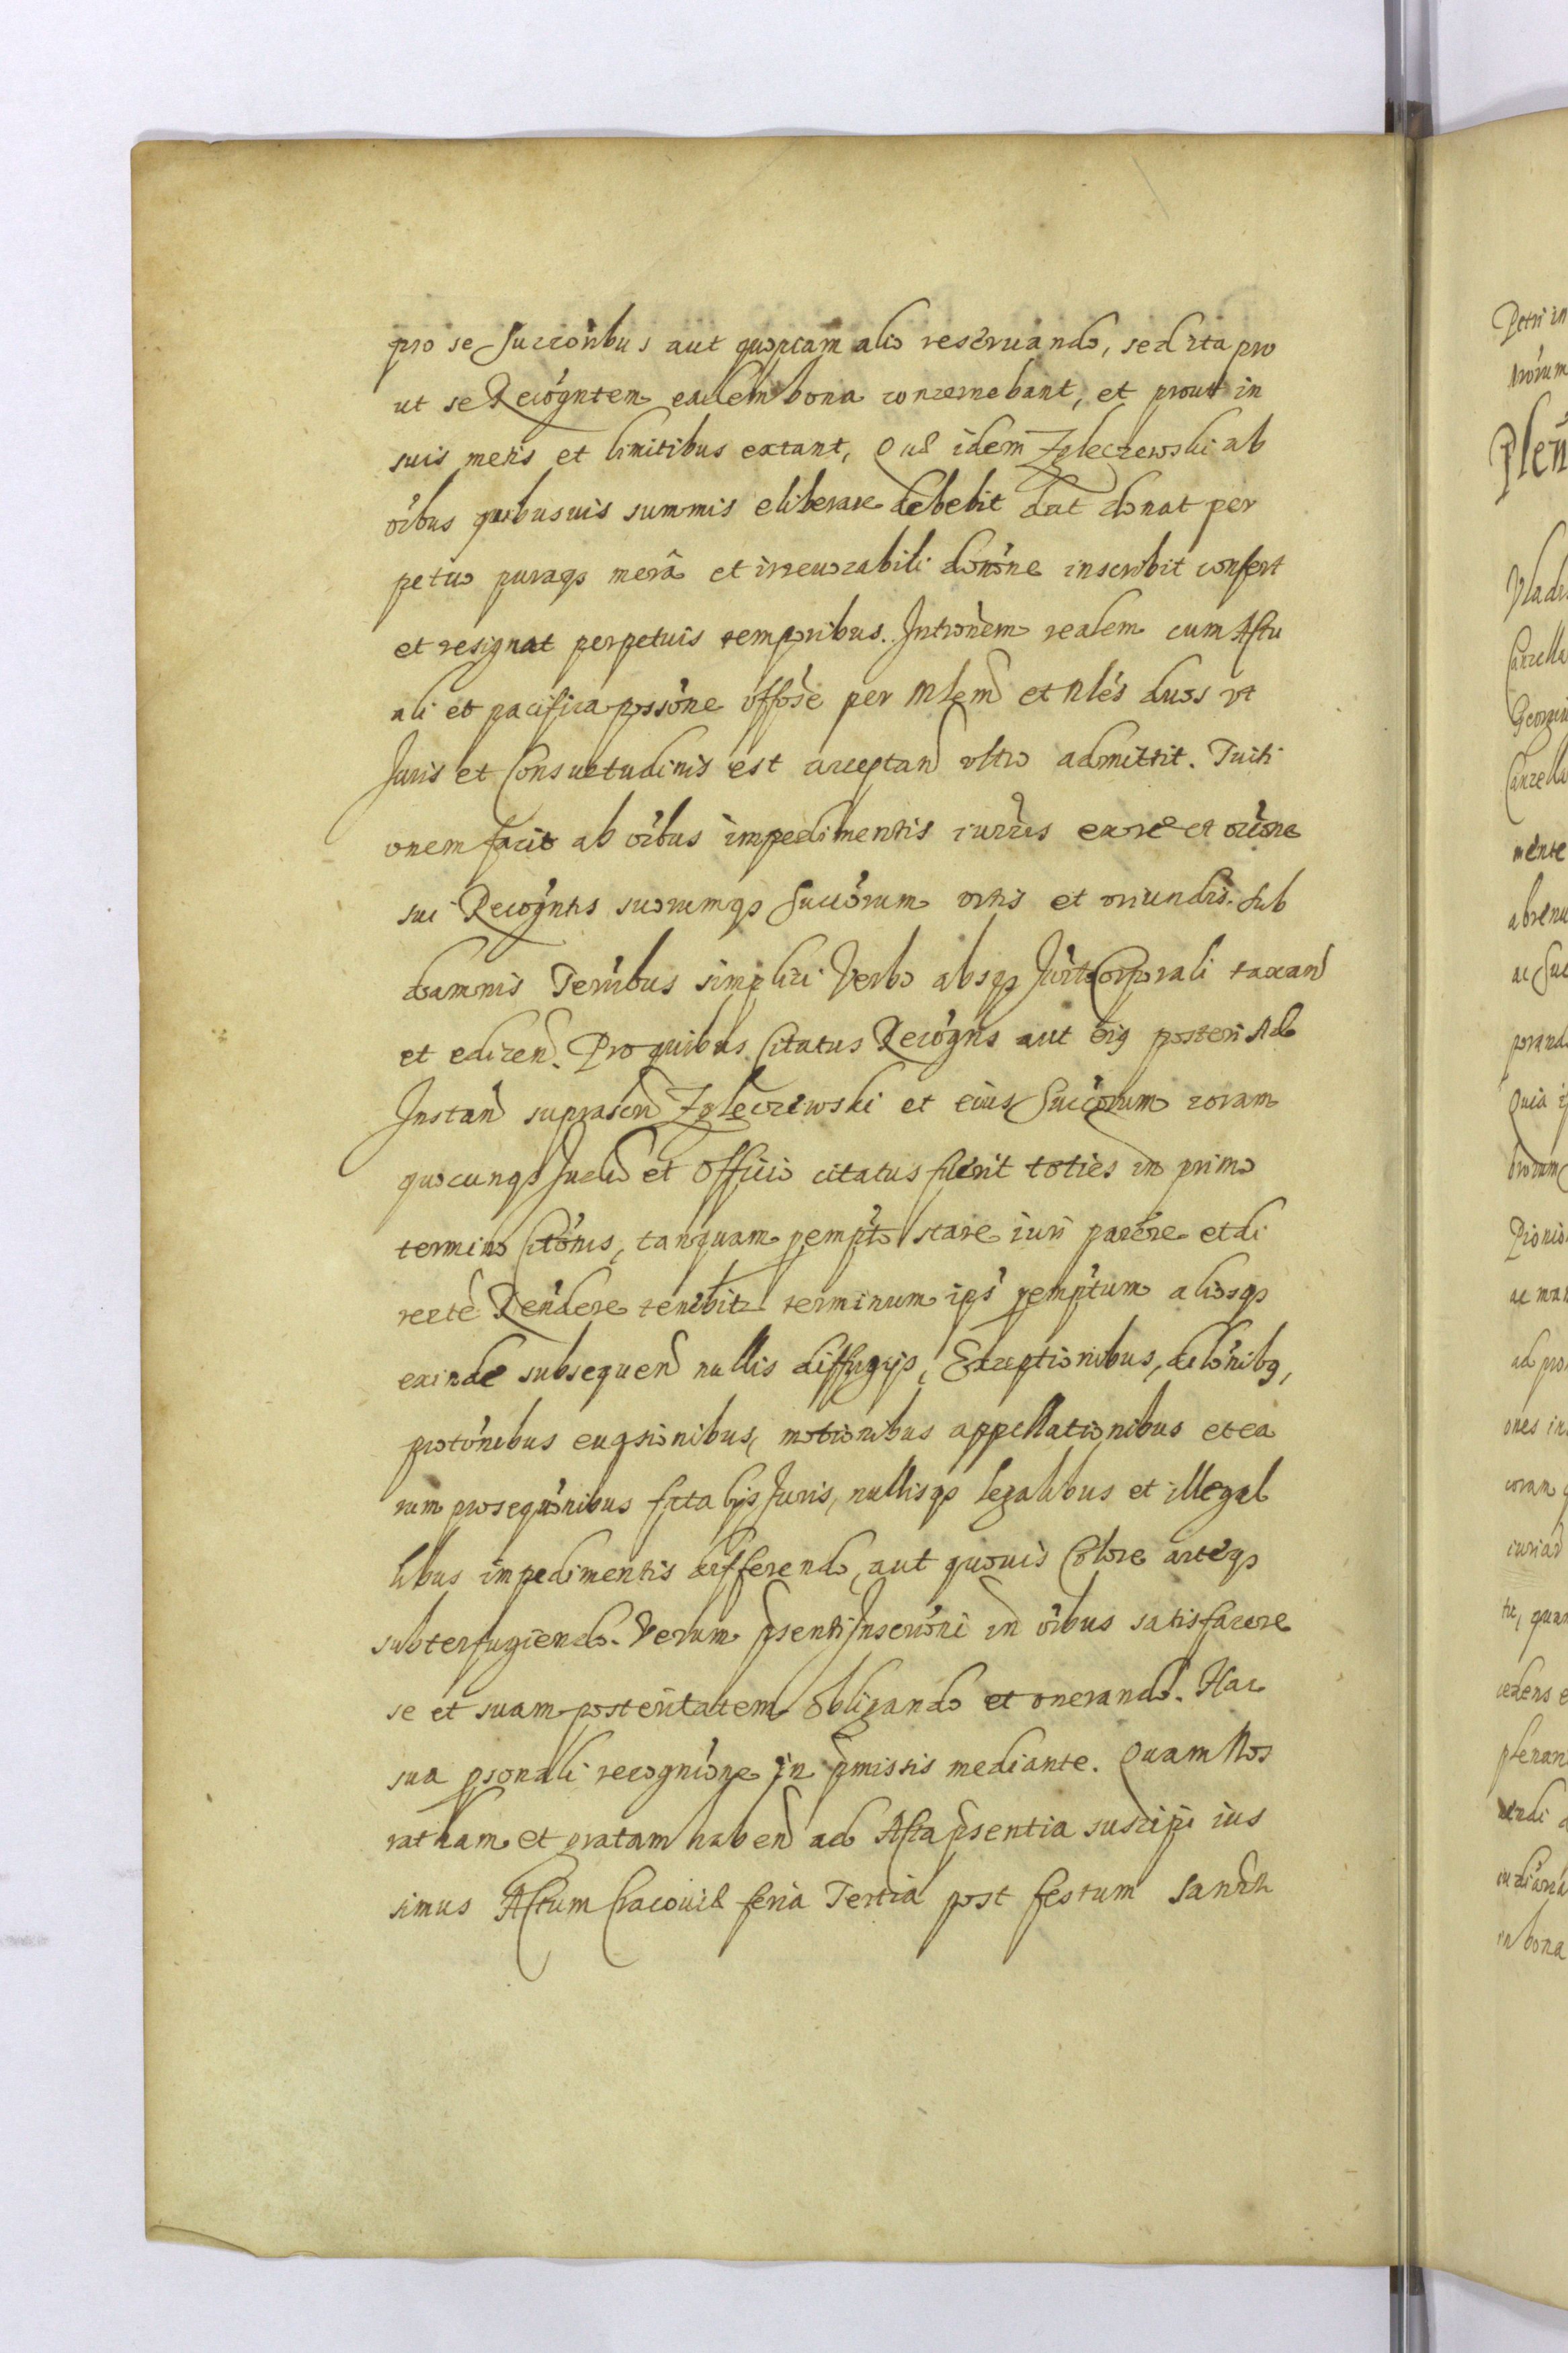 pro se Succoribus aut quopiam alio reseruando, sed ita pro
ut se Recogntem eadem bona concernebant, et prout in
suis metis et limitibus extant, Quę idem Zgleczewski ab
oibus quibusuis summis eliberare debebit dat donat per
petuo puraqз mera et irreuocabili donone inscribit confert
et resignat perpetuis temporibus. Intronem realem cum Actu
ali et pacifica possone offose per Mlem et Nles duos vt
Juris et Consuetudinis est acceptand vltro admittit. Tuiti
onem facit ab oibus impedimentis iurris ex re et ocione
sui Recogntis suorumqз Succorum ortis et oriundis. Sub
damnis Terribus simplici Verbo absqз Jurto Corporali taxand
et edicend. Pro quibus Citatus Recogns aut eig posteri Ad
Instan suprascri Zgleczewski et eius Succorum coram
quocunqз Judio et Officio citatus fuerit toties in primo
termino Citonis, tanquam pempto stare iuri parere et di
recte Rendere tenebitr terminum ips pemptum aliosqз
exinde subsequen nullis diffugijs, Exceptionibus, dilonibg,
protonibus euasionibus, motionibus appellationibus et ea
rum prosequonibus fatalijs Juris, nullisqз legalibus et illegal
libus impedimentis differendo, aut quouis Colore arteqз
subterfugiendo. Verum psenti Inscrioni in oibus satisfacere
se et suam posteritatem obligando et onerando. Hac
sua psonali recognione in pmissis mediante. Quam Nos
ratham et gratam haben ad Acta psentia suscipi ius
simus Actum Cracouię feria Tertia post festum Sancti

Petri in
Plen
Vladis
Cancella
Georgiu
Cancella
mente
abrenu
ac Suc
porand
Quia i
ac man
ad pro
ones in
coram q
cedens e
plenam
in bona